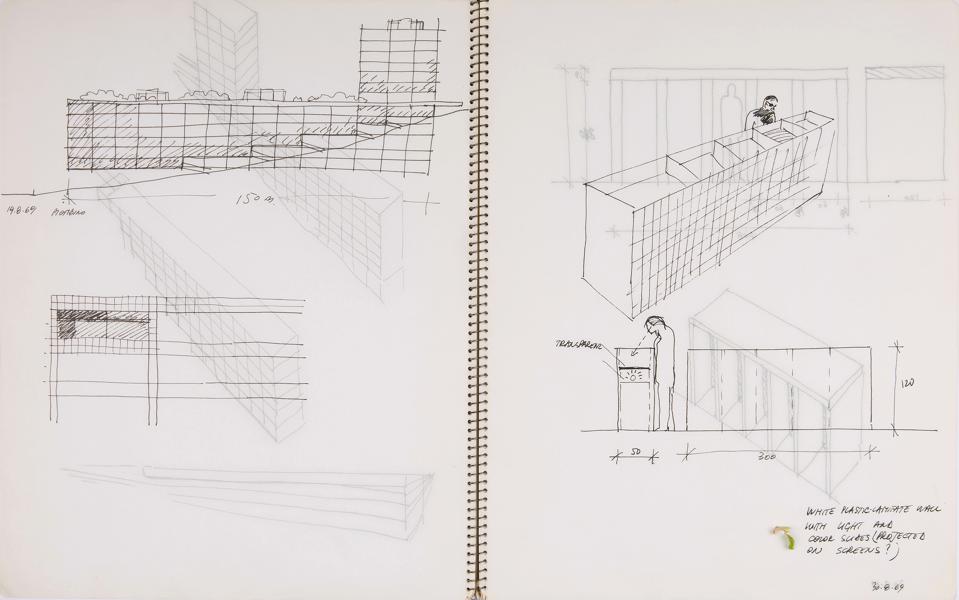 150 m.
19.8.69 PIOMBINO
TRANSPARENT
120
50
300
WHITE PLASTIC-LAMITATE WALL
WITH LIGHT AND
COLOR SLIDES (PROJECTED
ON SCREENS?)
30-8-69